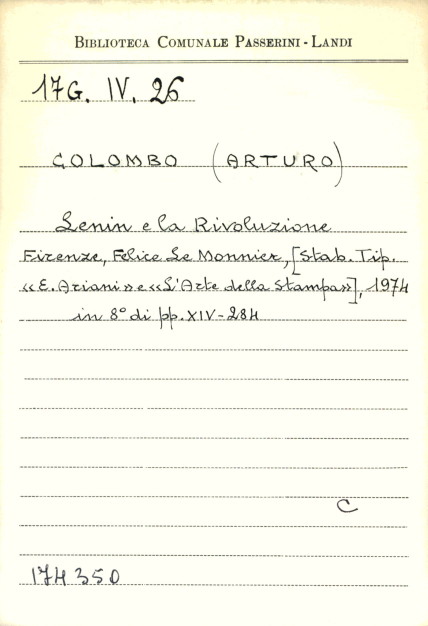 BIBLIOTECA COMUNALE PASSERINI - LANDI
17G. IV. 26
COLOMBO (ARTURO)
Lenin e la Rivoluzione
Firenze, Felice Le Monnier, [Stab. Tip.
«E. Ariani» e «L'Arte della Stampa»], 1974
in 8° di pp. XIV-284
C
174350